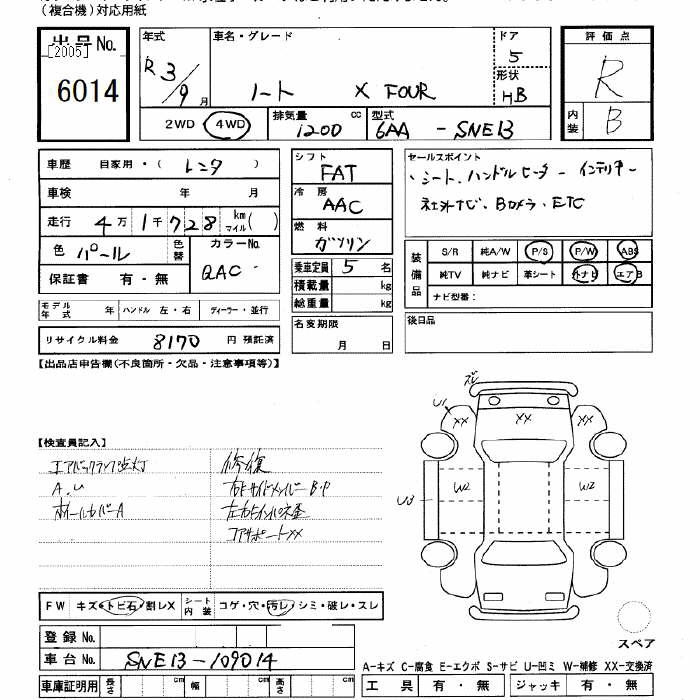 (複合機)対応用紙
出品No.
[2005]
6014
年式
R3/9月
車名・グレード
ノート X FOUR
ドア
5
形状
HB
2WD 4WD
排気量
1200 cc
型式
6AA - SNE13
評価点
R
内装
B
車歴 自家用・(レンタ)
車検 年 月
走行 4万1千728 km マイル( )
色 パール 色替
カラーNo.
QAC
保証書 有・無
モデル年式 年 ハンドル 左・右 ディーラー・並行
リサイクル料金 8170 円 預託済
シフト
FAT
冷房
AAC
燃料
ガソリン
乗車定員 5 名
積載量 kg
総重量 kg
名変期限
月 日
セールスポイント
・シート、ハンドルヒーター インテリキー
社外ナビ、Bカメラ、ETC
装備品
S/R 純A/W P/S P/W ABS
純TV 純ナビ 革シート 外ナビ エアB
ナビ型番:
後日品
【出品店申告欄(不良箇所・欠品・注意事項等)】
【検査員記入】
エアバックランプ点灯 修復
A.U 右Fサイドメンバー B・P
ホイールカバーA 左右Fインパネ歪
コアサポートXX
ズレ
U1
XX XX XX
U3
W2 W2
スペア
FW キズ・トビ石・割レX シート内装 コゲ・穴・汚レ・シミ・破レ・スレ
登録No.
車台No. SNE13-109014
車庫証明用 長さ cm 幅 cm 高さ cm
A-キズ C-腐食 E-エクボ S-サビ U-凹ミ W-補修 XX-交換済
工具 有・無 ジャッキ 有・無